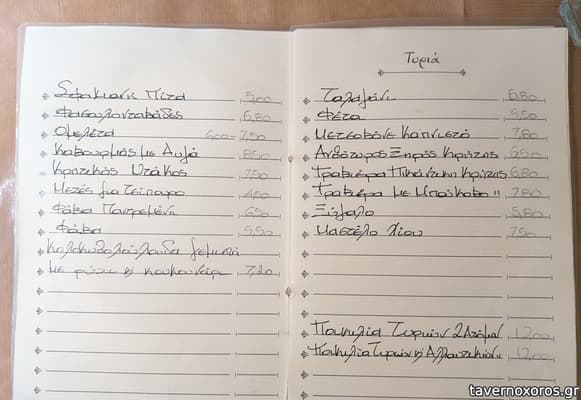 Σφακιανή Πίτα 5,00
Φασολονταβάδες 6,80
Ομελέτα 6,00 - 7,50
Καβουρμάς με Αυγά 8,50
Κρητικός Ντάκος 7,50
Μεζές για Τσίπουρο 4,00
Φάβα Παντρεμένη 6,50
Φάβα 5,50
Κολοκυθολούλουδα γεμιστά
με ρύζι κ κουκουνάρι 7,20
Τυριά
Ταλαγάνι 6,80
Φέτα 5,50
Μετσοβόνε Καπνιστό 7,80
Ανθότυρος Ξηρός Κρήτης 6,50
Γραβιέρα Πικάντικη Κρήτης 6,80
Γραβιέρα με Μπούκοβο " 7,80
Ξύγαλο 5,80
Μαστέλο Χίου 7,50
Ποικιλία Τυριών 2 Ατόμων 12,00
Ποικιλία Τυριών κ Αλλαντικών 12,00
tavernoxoros.gr